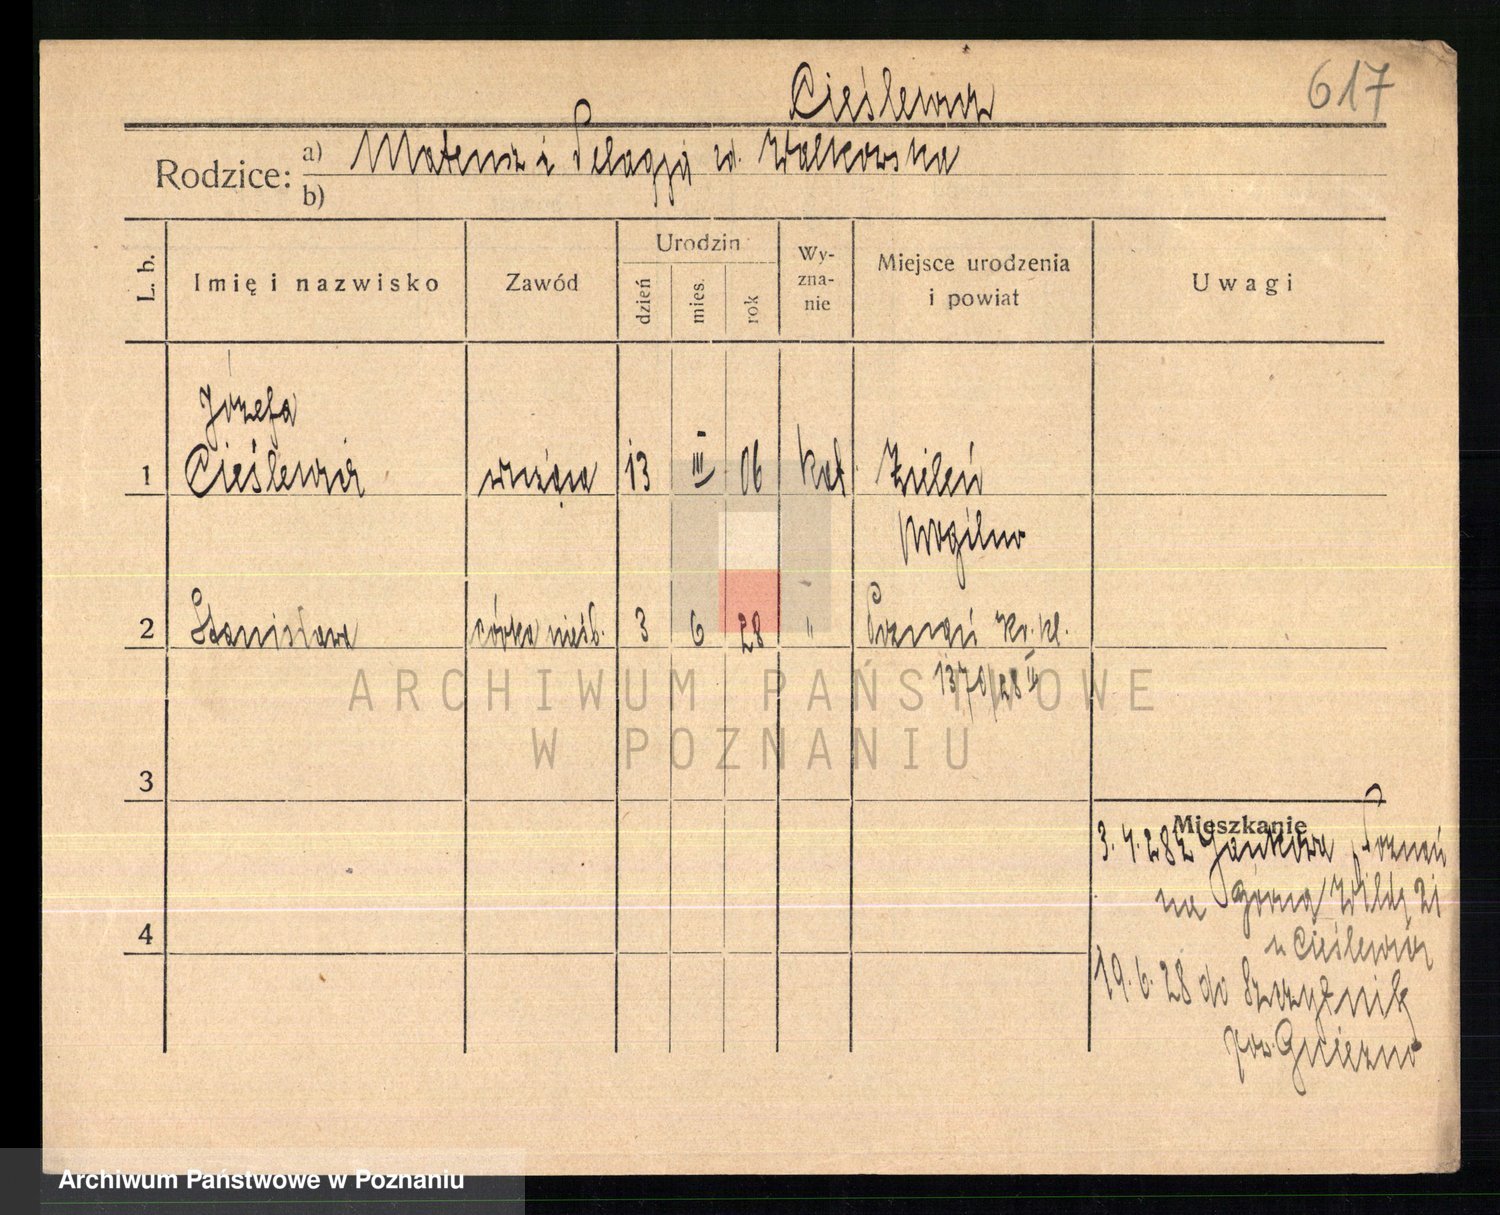 617
Cieślewicz
Rodzice: a) Mateusz i Pelagja zd. Walkowska
b)
L. b. Imię i nazwisko Zawód Urodzin dzień mies. rok Wyznanie Miejsce urodzenia i powiat Uwagi
Józefa
1 Cieślewicz służąca 13 III 06 kat. Zieleń
Mogilno
2 Stanisława córka nieśl. 3 6 28 " Poznań
1370/28 II
3
Mieszkanie
3. 4. 28 z Jankowa Poznań
na Górną Wildę 21
u Cieślewicz
4
19. 6. 28 do Szczytnik
pow. Gniezno
ARCHIWUM PAŃSTWOWE
W POZNANIU
Archiwum Państwowe w Poznaniu